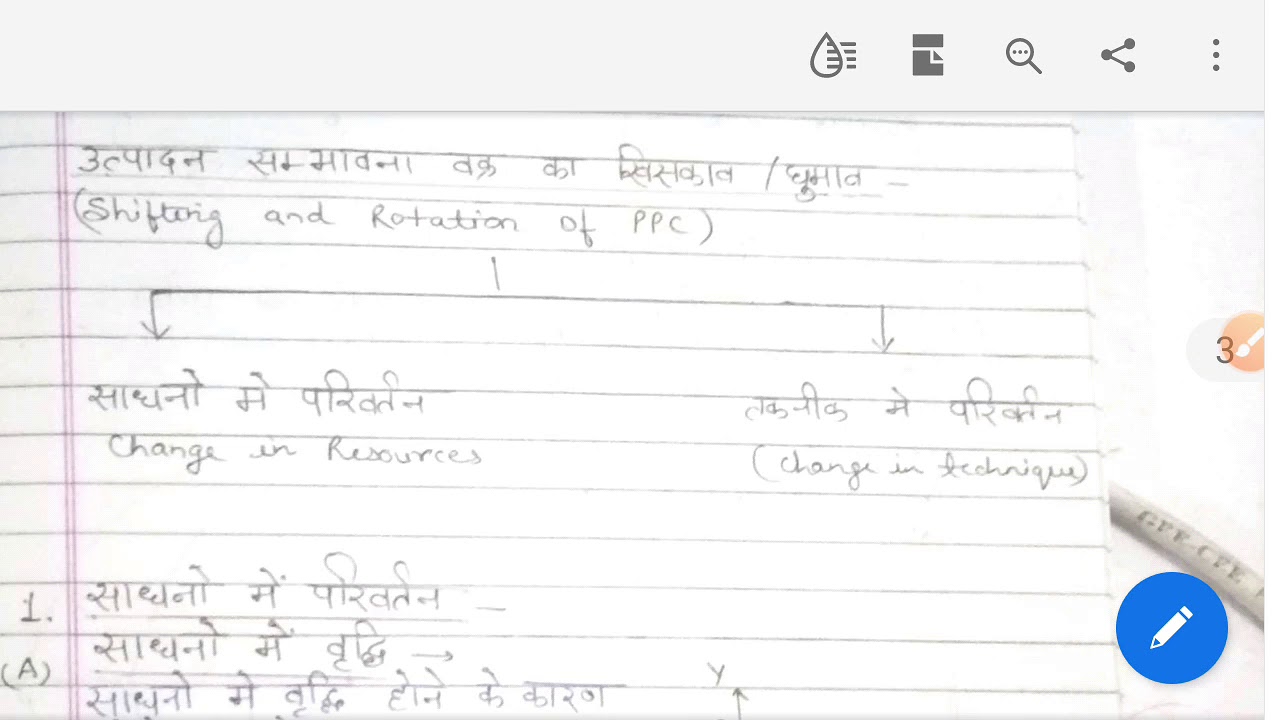 उत्पादन सम्भावना वक्र का खिसकाव / घुमाव –
(Shifting and Rotation of PPC)
साधनो मे परिवर्तन
Change in Resources
तकनीक मे परिवर्तन
(Change in technique)
3
1. साधनो में परिवर्तन –
(A) साधनो में वृद्धि →
साधनो मे वृद्धि होने के कारण
Y